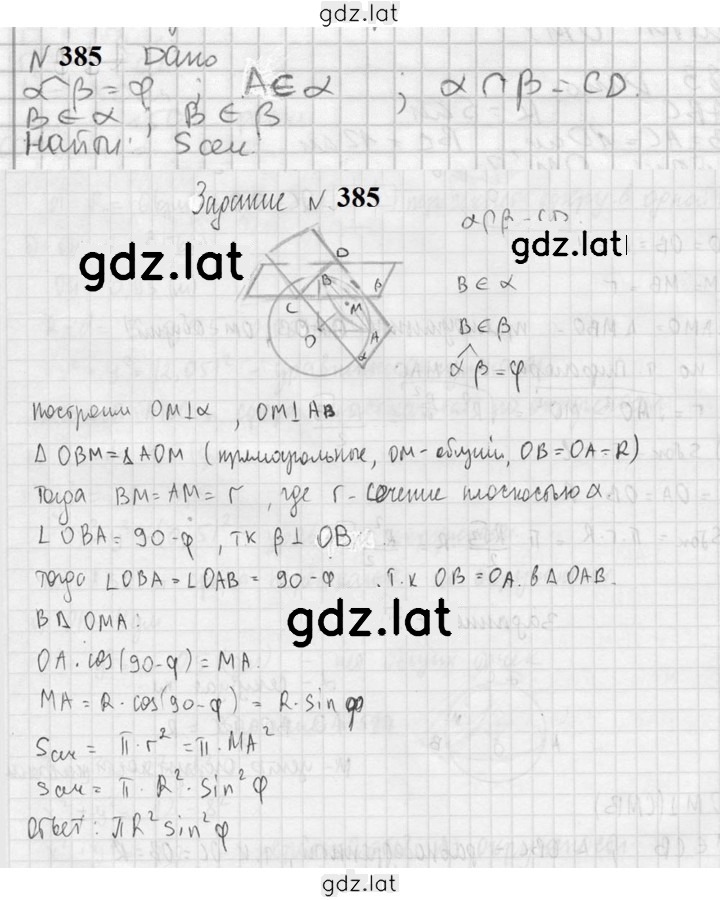 gdz.lat
N 385 Дано
α^β = φ ; A ∈ α ; α ∩ β = CD.
B ∈ α ; B ∈ β
Найти: Sсеч.
Задание N 385
α ∩ β - CD.
gdz.lat
gdz.lat
D
B
β
B ∈ α
C
M
O
A
B ∈ β
α
α^β = φ
построим OM ⊥ α , OM ⊥ AB
Δ OBM = Δ AOM (прямоугольные, OM - общий, OB = OA = R)
Тогда BM = AM = r , где r - сечение плоскостью α
∠ OBA = 90 - φ , т к β ⊥ OB
Тогда ∠ OBA = ∠ OAB = 90 - φ . т. к OB = OA. в Δ OAB.
В Δ OMA:
gdz.lat
OA · cos(90 - φ) = MA.
MA = R · cos(90 - φ) = R · sin φ
Sсеч = π · r² = π · MA²
Sсеч = π · R² · sin² φ
Ответ: πR² sin² φ
gdz.lat